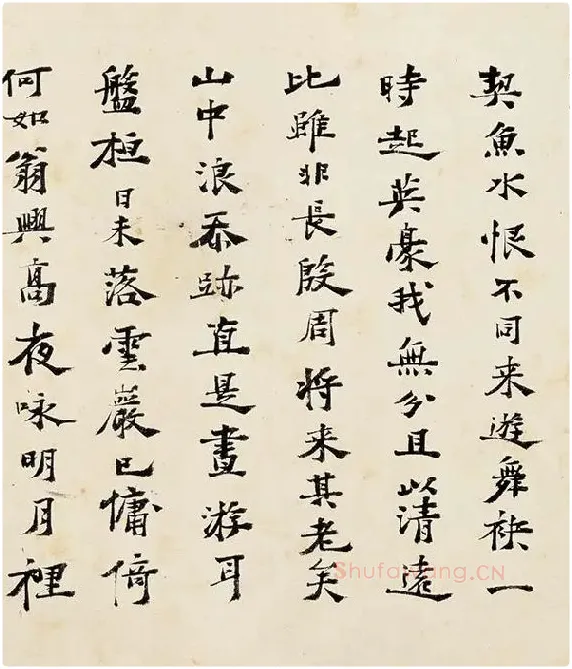 契魚水恨不同来遊舞袂一
時起英豪我無分且以清遠
比雖非長殷周将来其老矣
山中浪吞跡直是晝游耳
盤桓日未落雲巖已慵倚
何如翁興高夜咏明月裡
Shufawang.CN